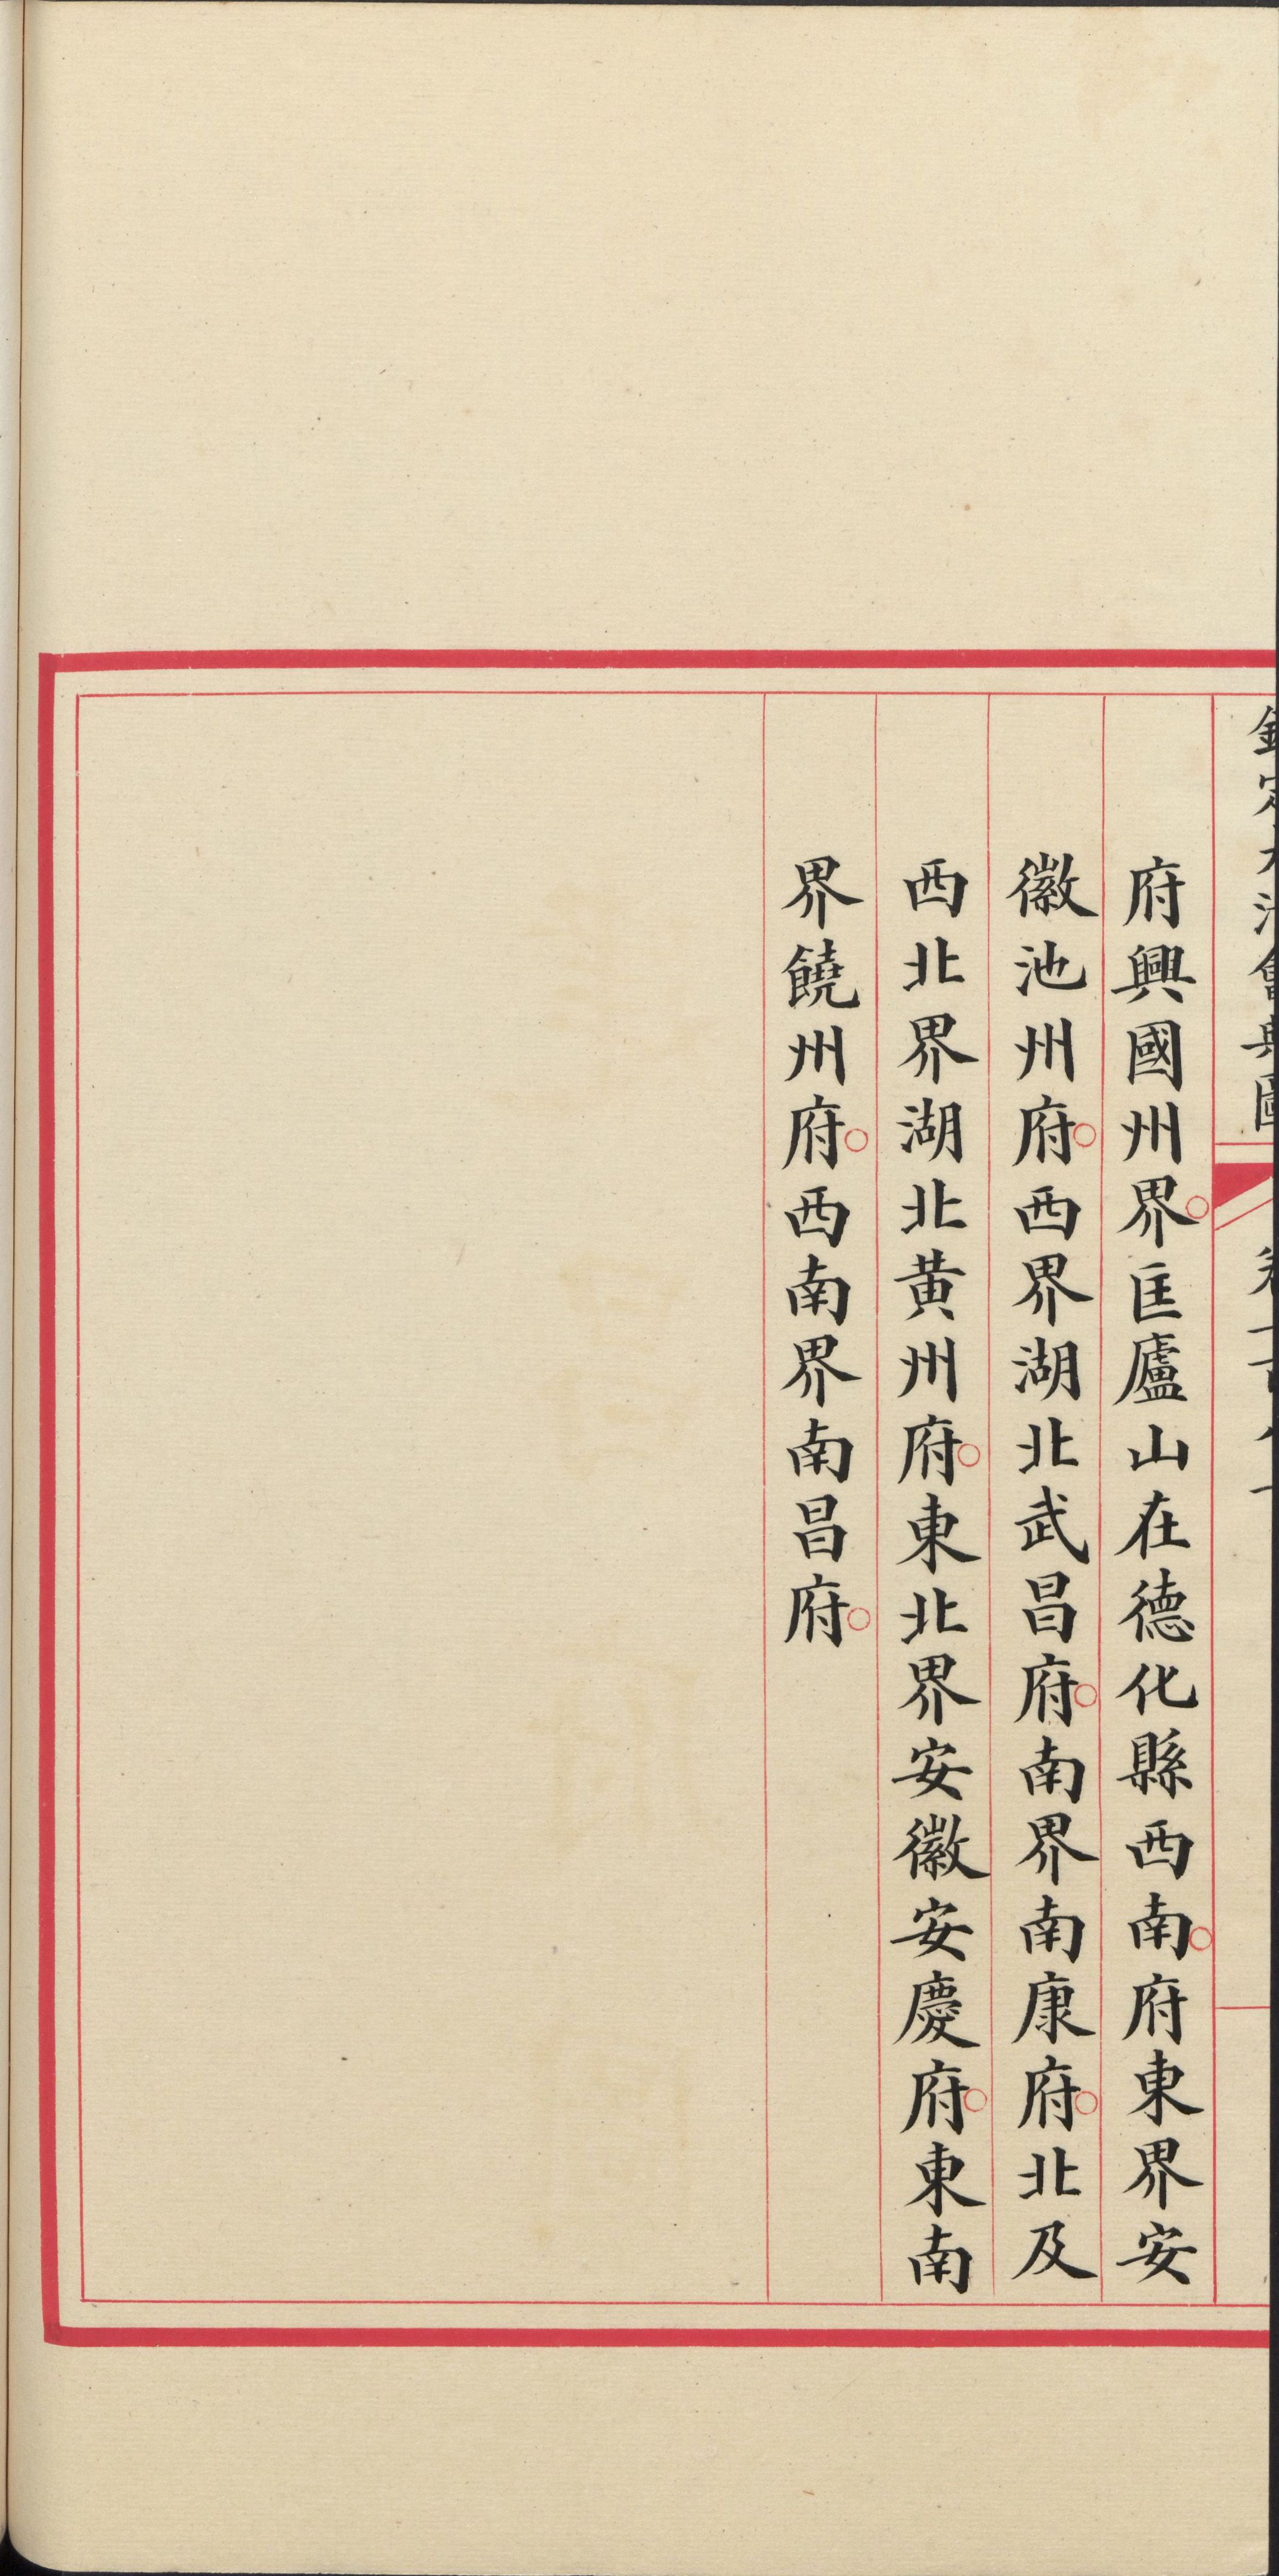 府興國州界匡廬山在德化縣西南府東界安
徽池州府西界湖北武昌府南界南康府北及
西北界湖北黃州府東北界安徽安慶府東南
界饒州府西南界南昌府